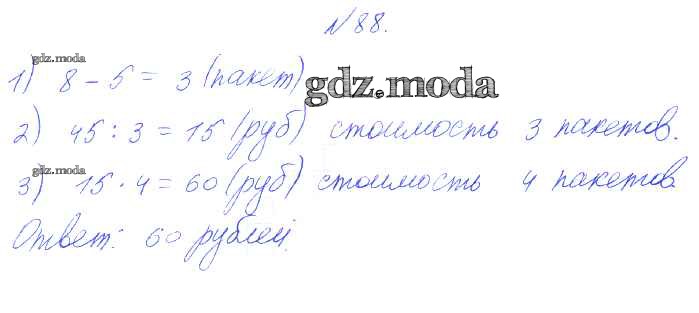 №88.
gdz.moda
1) 8 - 5 = 3 (пакет)
gdz.moda
2) 45 : 3 = 15 (руб) стоимость 3 пакетов.
gdz.moda
3) 15 · 4 = 60 (руб) стоимость 4 пакетов
Ответ: 60 рублей.